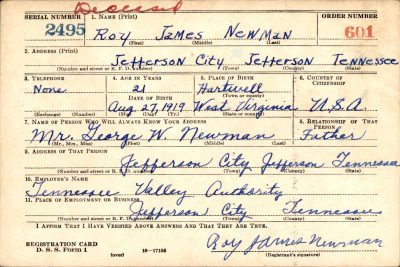 Deceased
SERIAL NUMBER 1. NAME (Print) ORDER NUMBER
2495 Roy James Newman 601
(First) (Middle) (Last)
2. ADDRESS (Print)
Jefferson City Jefferson Tennessee
(Number and street or R. F. D. number) (Town) (County) (State)
3. TELEPHONE 4. AGE IN YEARS 5. PLACE OF BIRTH 6. COUNTRY OF CITIZENSHIP
None 21 Hartwell
DATE OF BIRTH (Town or county)
Aug 27, 1919 West Virginia U.S.A.
(Exchange) (Number) (Mo.) (Day) (Yr.) (State or country)
7. NAME OF PERSON WHO WILL ALWAYS KNOW YOUR ADDRESS 8. RELATIONSHIP OF THAT PERSON
Mr. George W. Newman Father
(Mr., Mrs., Miss) (First) (Middle) (Last)
9. ADDRESS OF THAT PERSON
Jefferson City Jefferson Tennessee
(Number and street or R. F. D. number) (Town) (County) (State)
10. EMPLOYER'S NAME
Tennessee Valley Authority
11. PLACE OF EMPLOYMENT OR BUSINESS
Jefferson City Tennessee
(Number and street or R. F. D. number) (Town) (County) (State)
I AFFIRM THAT I HAVE VERIFIED ABOVE ANSWERS AND THAT THEY ARE TRUE.
Roy James Newman
REGISTRATION CARD
D. S. S. Form 1 (over) 16—17105 (Registrant's signature)